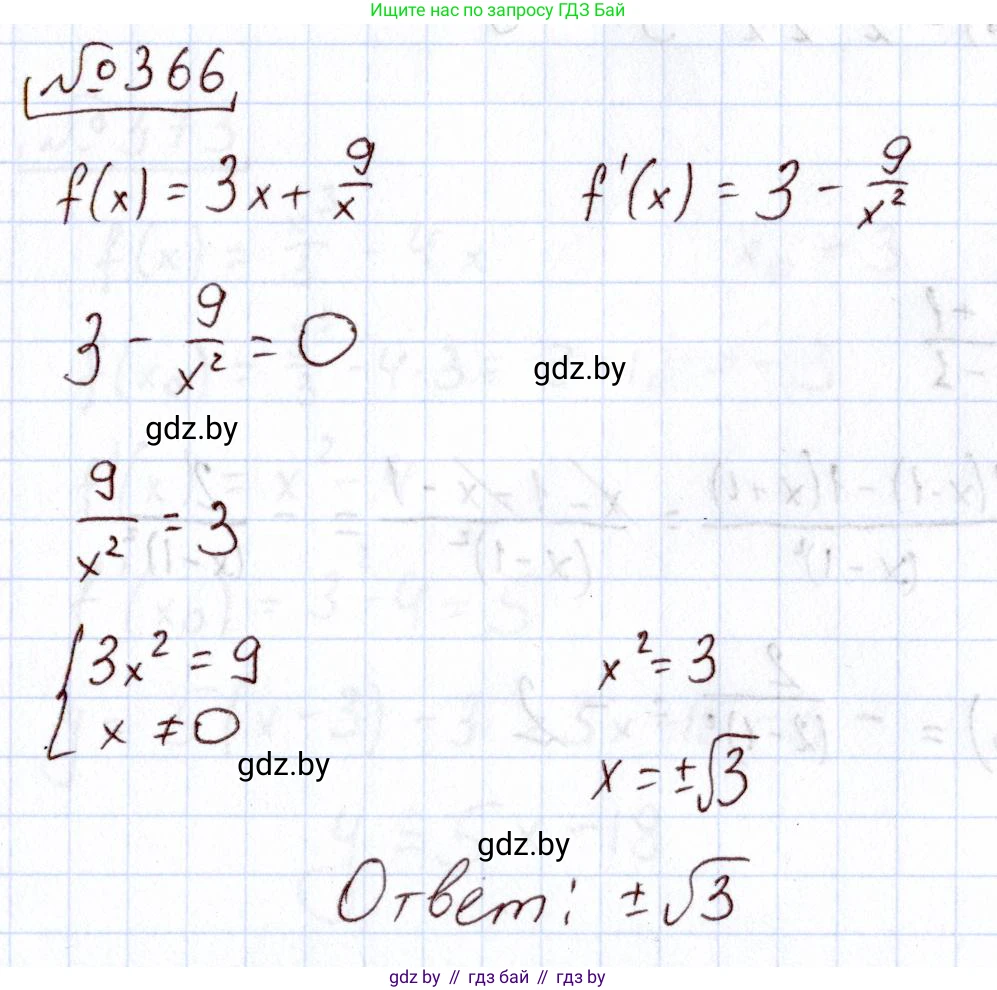 Ищите нас по запросу ГДЗ Бай
№366
f(x) = 3x + 9/x
f'(x) = 3 - 9/x²
3 - 9/x² = 0
gdz.by
gdz.by
9/x² = 3
{ 3x² = 9
x ≠ 0
x² = 3
gdz.by
x = ±√3
gdz.by
Ответ: ±√3
gdz.by // гдз бай // гдз by